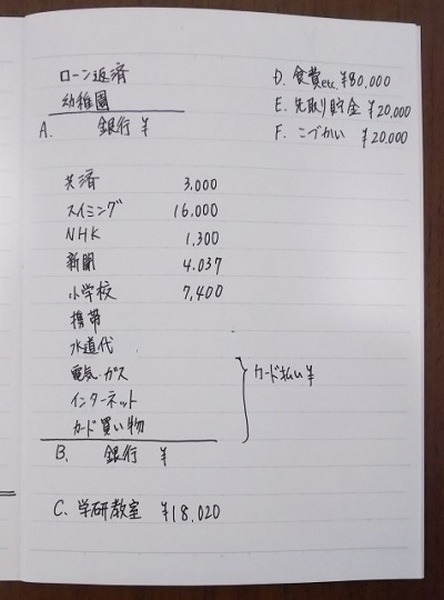 ローン返済
幼稚園
A. 銀行 ¥
D. 食費etc. ¥80,000
E. 先取り貯金 ¥20,000
F. こづかい ¥20,000
共済 3,000
スイミング 16,000
NHK 1,300
新聞 4.037
小学校 7,400
携帯
水道代
電気・ガス
インターネット
カード買い物
カード払い ¥
B. 銀行 ¥
C. 学研教室 ¥18,020